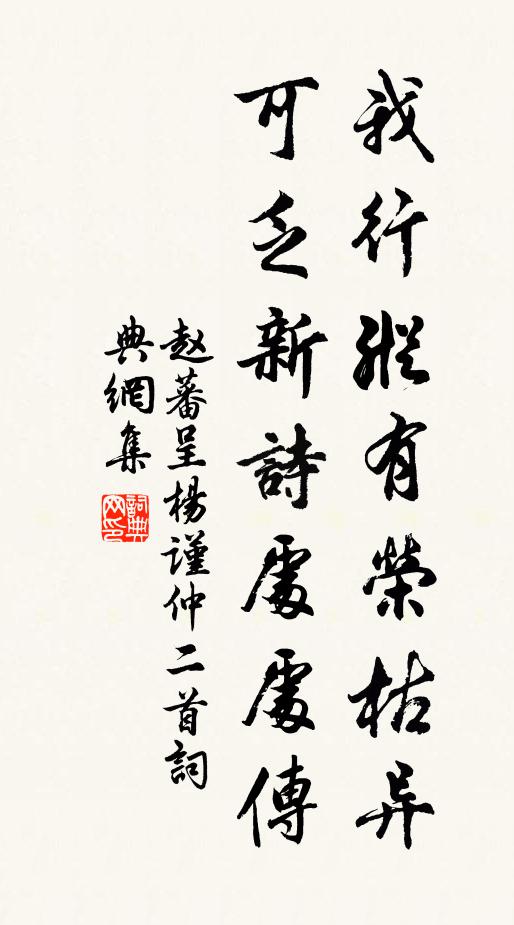 我行縱有榮枯异
可乏新詩處處傳
赵蕃呈楊謹仲二首詞
典網集
詞典
网印